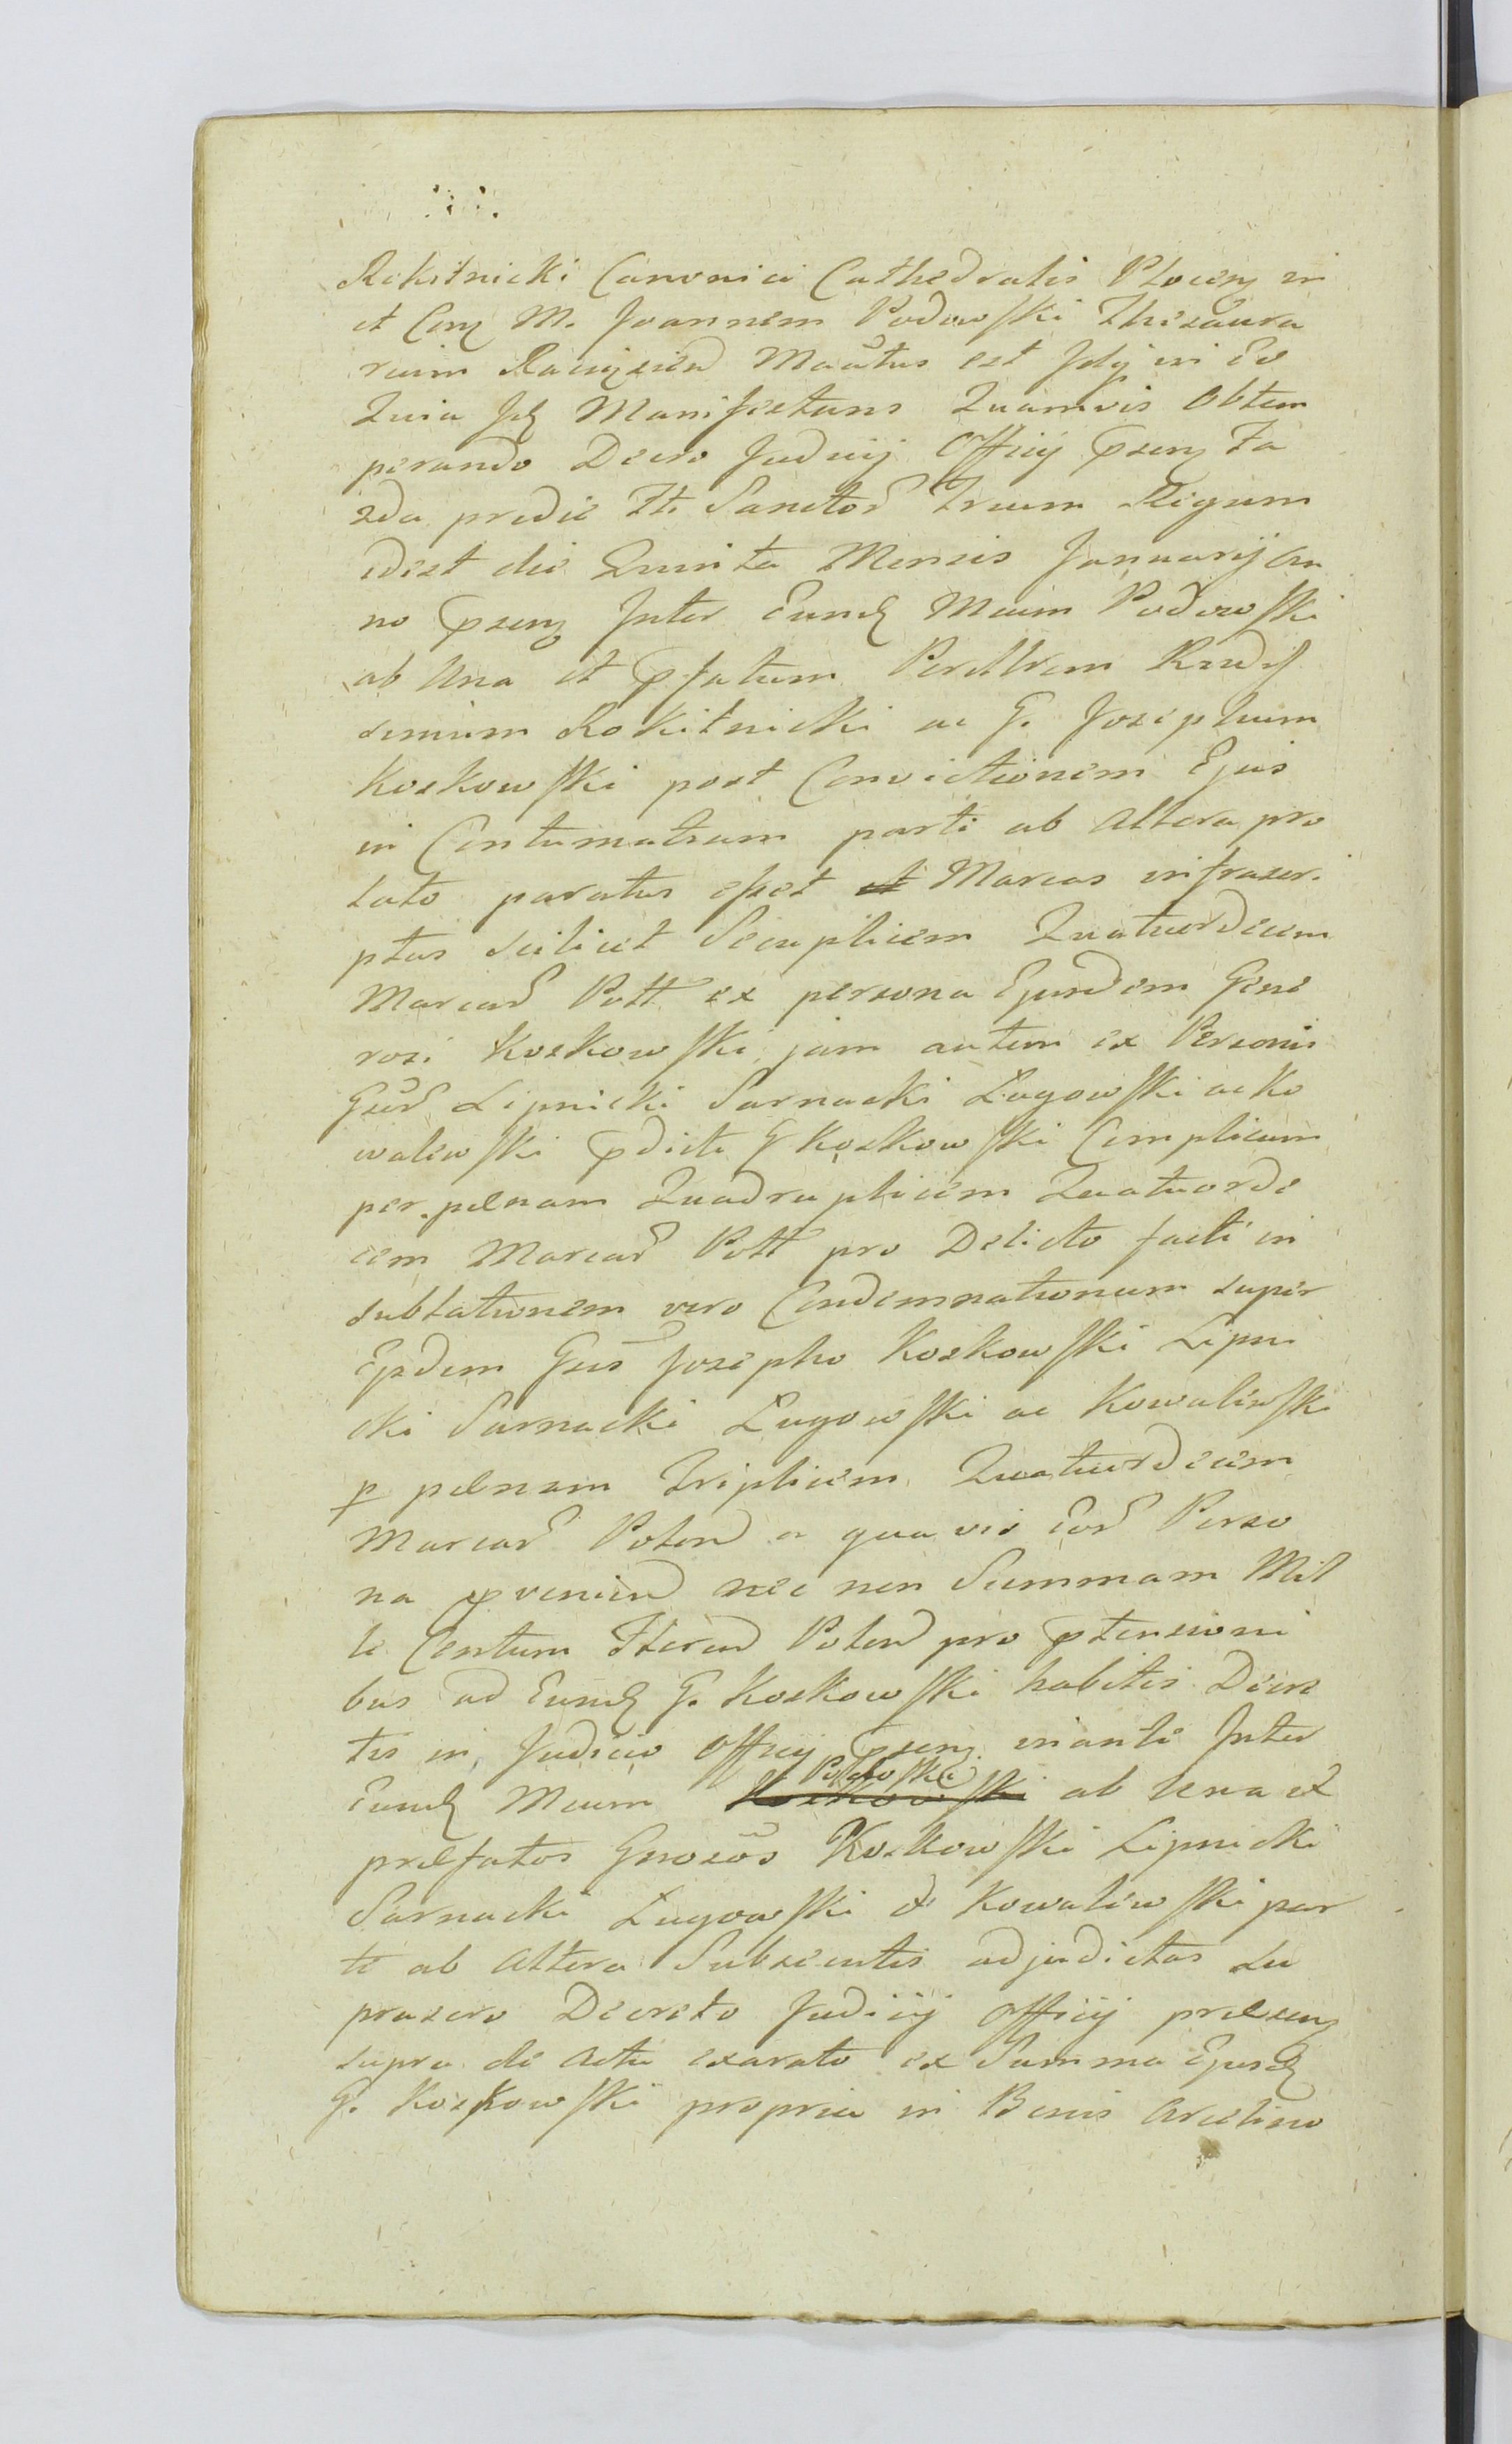 Rokitnicki Canonici Cathedralis Plocen in
et Con M. Joannem Podowski Thesaura
rium Raciązien Maatus est Idq in Eo
Quia Id Manifestans Quamvis Obtem
perando Decro Judicij Officij pzen Fa
zda predie Ft. Sanctor Trium Regum
idest die Quinta Mensis Januarij An
no pzen Inter Eund Mcum Podowski
ab Una et pfatum Perillrem Rndis
simum Rokitnicki ac G. Josephum
Koskowski post Convictionem Ejus
in Contumatiam parti ab Altera pro
lato paratus esset et Marcas infrascri
ptas scilicet Sexuplicem Quatuordecim
Marcar Poll ex persona Ejusdem Gene
rosi Koskowski jam autem ex Personis
Gsor Lipnicki Sarnacki Lugowski ac Ko
walewski pdicti G Koskowski Complicum
per paenam Quadruplicem Quatuorde
cem Marcar Poll pro Delicto facti in
sublationem vero Condemnationum super
Ejsdem Gsis Josepho Koskowski Lipni
cki Sarnacki Lugowski ac Kowalewski
p paenam Triplicem Quatuordecem
Marcar Polon a quavis Eor Perso
na pvenien nec non Summam Mil
le Centum Floren Polon pro ptensioni
bus ad Eund G. Koskowski habitis Decre
tis in Judicio Officij pzen inanti Inter
Podowski
Eund Mcum Koskowski ab Una et
praefatos Gnosos Koskowski Lipnicki
Sarnacki Lugowski & Kowalewski par
te ab Altera Subsecutis adjudictas Su
prascro Decreto Judicij Officij praesen
supra de Actu exarato ex Summa Ejusd
G. Koskowski propria in Bonis Arcelino